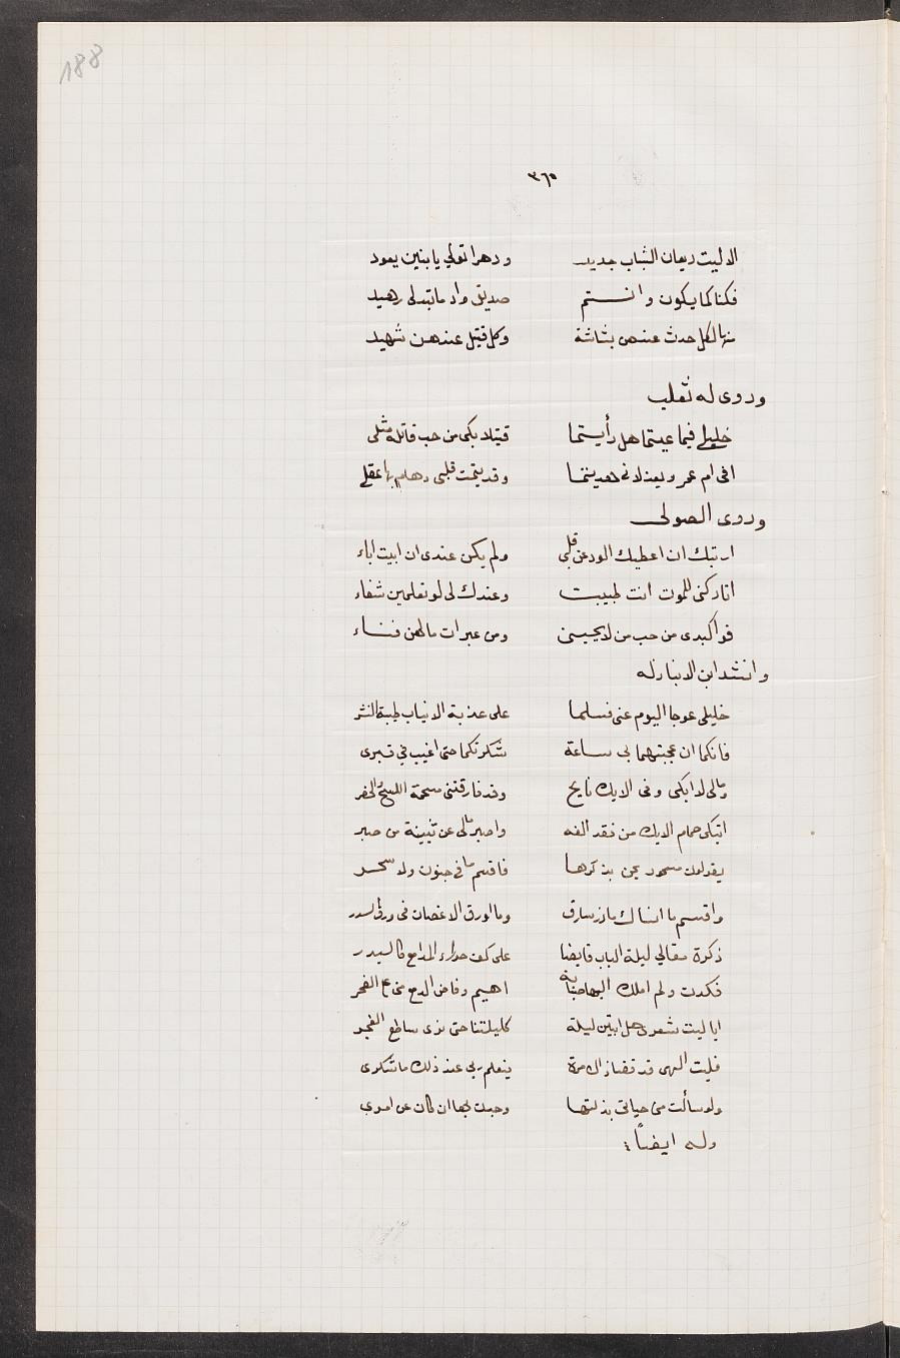 188
٣٦٥
الا ليت ريعان الشباب جديد ودهرا تولى يا بثين يعود
فكنا كما يكون وانتم صديق واذ ما تبذلى زهيد
منها لكل حدث عندهن بشاشة وكل قتيل عندهن شهيد
وروى له ثعلب
خليلى فيما عشتما هل رأيتما قتيلا بكى من حب قاتله مثلى
افى ام عمر وتعذلانى هديتما وقد يتمت قلبى وهام بها عقلى
وروى الصولى
ارتبك ان اعطيك الود عن قلى ولم يكن عندى ان ابيت اباء
اتاركنى للموت انت طبيبت وعندك لى لو تعلمين شفاء
فواكبدى من حب من لا يحبنى ومن عبرات ما لهن فناء
وانشد ابن الانبا رله
خليلى عوجا اليوم عنى فسلما على عذبة الانياب طيبة النشر
فانكما ان عجبتهما بى ساعة شكرتكما حتى اغيب في قبرى
ومالى لا ابكى وفى الايك نايح وقد فارقتنى الخفر
اتبكى حمام الايك من فقد الفه واصبر مالى عن بثينة من صبر
يقولون مسحور يجن بذكرها فاقسم ما في جنون ولا سحر
واقسم ما انساك ما ذر شارق وما اورق الاغصان فى ورق السدر
ذكرة مقالي ليلة الباب قابضا على كف حوراء المدامع كالبدر
فكدت ولم املك اليها صبابة اهيم وفاض الدمع مع الفجر
ايا ليت شعرى هل ابيتن ليلة كليلتنا حتى نرى ساطع الفجر
فليت الهى قد قضا ذاك مرة فيعلم ربى عند ذلك ما شكرى
ولو سألت منى حياتى بذلتها وجدت بها ان كان عن امرى
وله ايضاً: